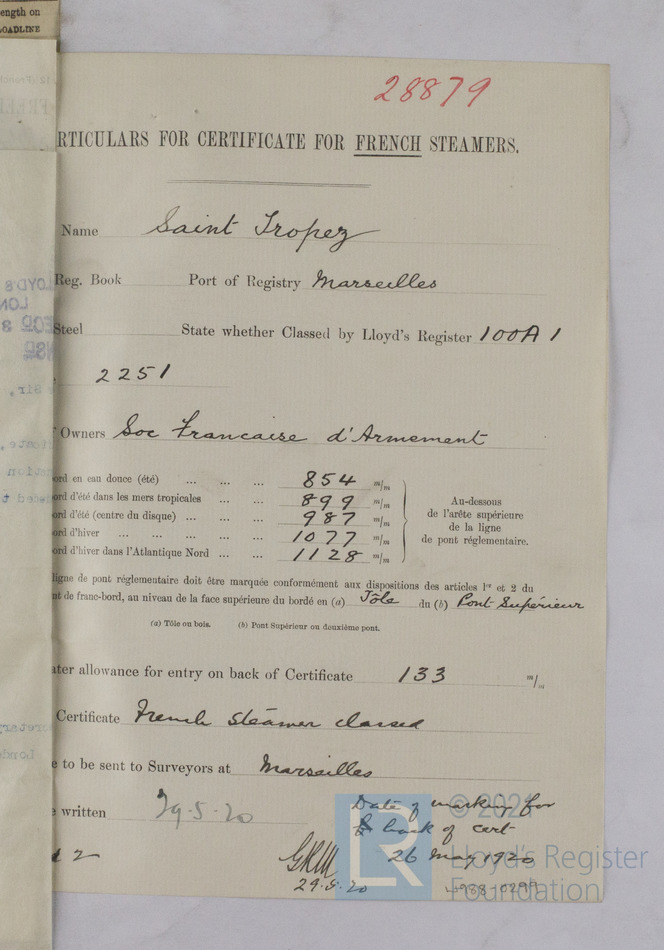 ength on
OADLINE
28879
RTICULARS FOR CERTIFICATE FOR FRENCH STEAMERS.
Name Saint Tropez
Reg. Book Port of Registry Marseilles
Steel State whether Classed by Lloyd's Register 100A1
2251
Owners Soc Francaise d'Armement
ord en eau douce (été) ... ... ... 854 m/m
ord d'été dans les mers tropicales ... ... 899 m/m
ord d'été (centre du disque) ... ... ... 987 m/m
ord d'hiver ... ... ... ... ... 1077 m/m
ord d'hiver dans l'Atlantique Nord ... ... 1128 m/m
Au-dessous
de l'arête supérieure
de la ligne
de pont réglementaire.
ligne de pont réglementaire doit être marquée conformément aux dispositions des articles 1er et 2 du
nt de franc-bord, au niveau de la face supérieure du bordé en (a) Tôle du (b) Pont Supérieur
(a) Tôle ou bois. (b) Pont Supérieur ou deuxième pont.
ater allowance for entry on back of Certificate 133 m/m
Certificate French steamer classed
e to be sent to Surveyors at Marseilles
e written 29-5-20
Date of marking for
back of cert
26 May 1920
2
GRM
29.5.20
© 2021
Lloyd's Register
Foundation